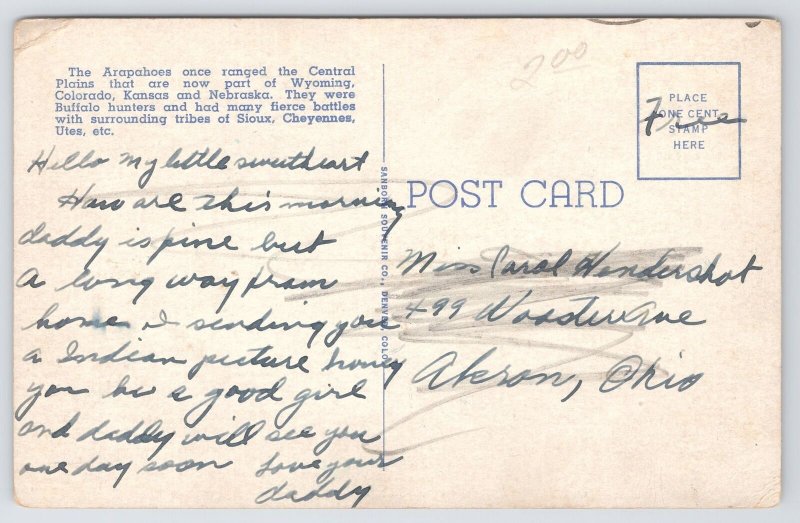 The Arapahoes once ranged the Central
Plains that are now part of Wyoming,
Colorado, Kansas and Nebraska. They were
Buffalo hunters and had many fierce battles
with surrounding tribes of Sioux, Cheyennes,
Utes, etc.
Hello My little sweetheart
How are this morning
daddy is fine but
A long way from
home I sending you
a Indian picture honey
you be a good girl
and daddy will see you
one day soon Love your
daddy
SANBORN SOUVENIR CO., DENVER, COLO.
2.00
PLACE
ONE CENT
STAMP
HERE
Free
POST CARD
Miss Carol Hendershot
499 Wooster Ave
Akron, Ohio